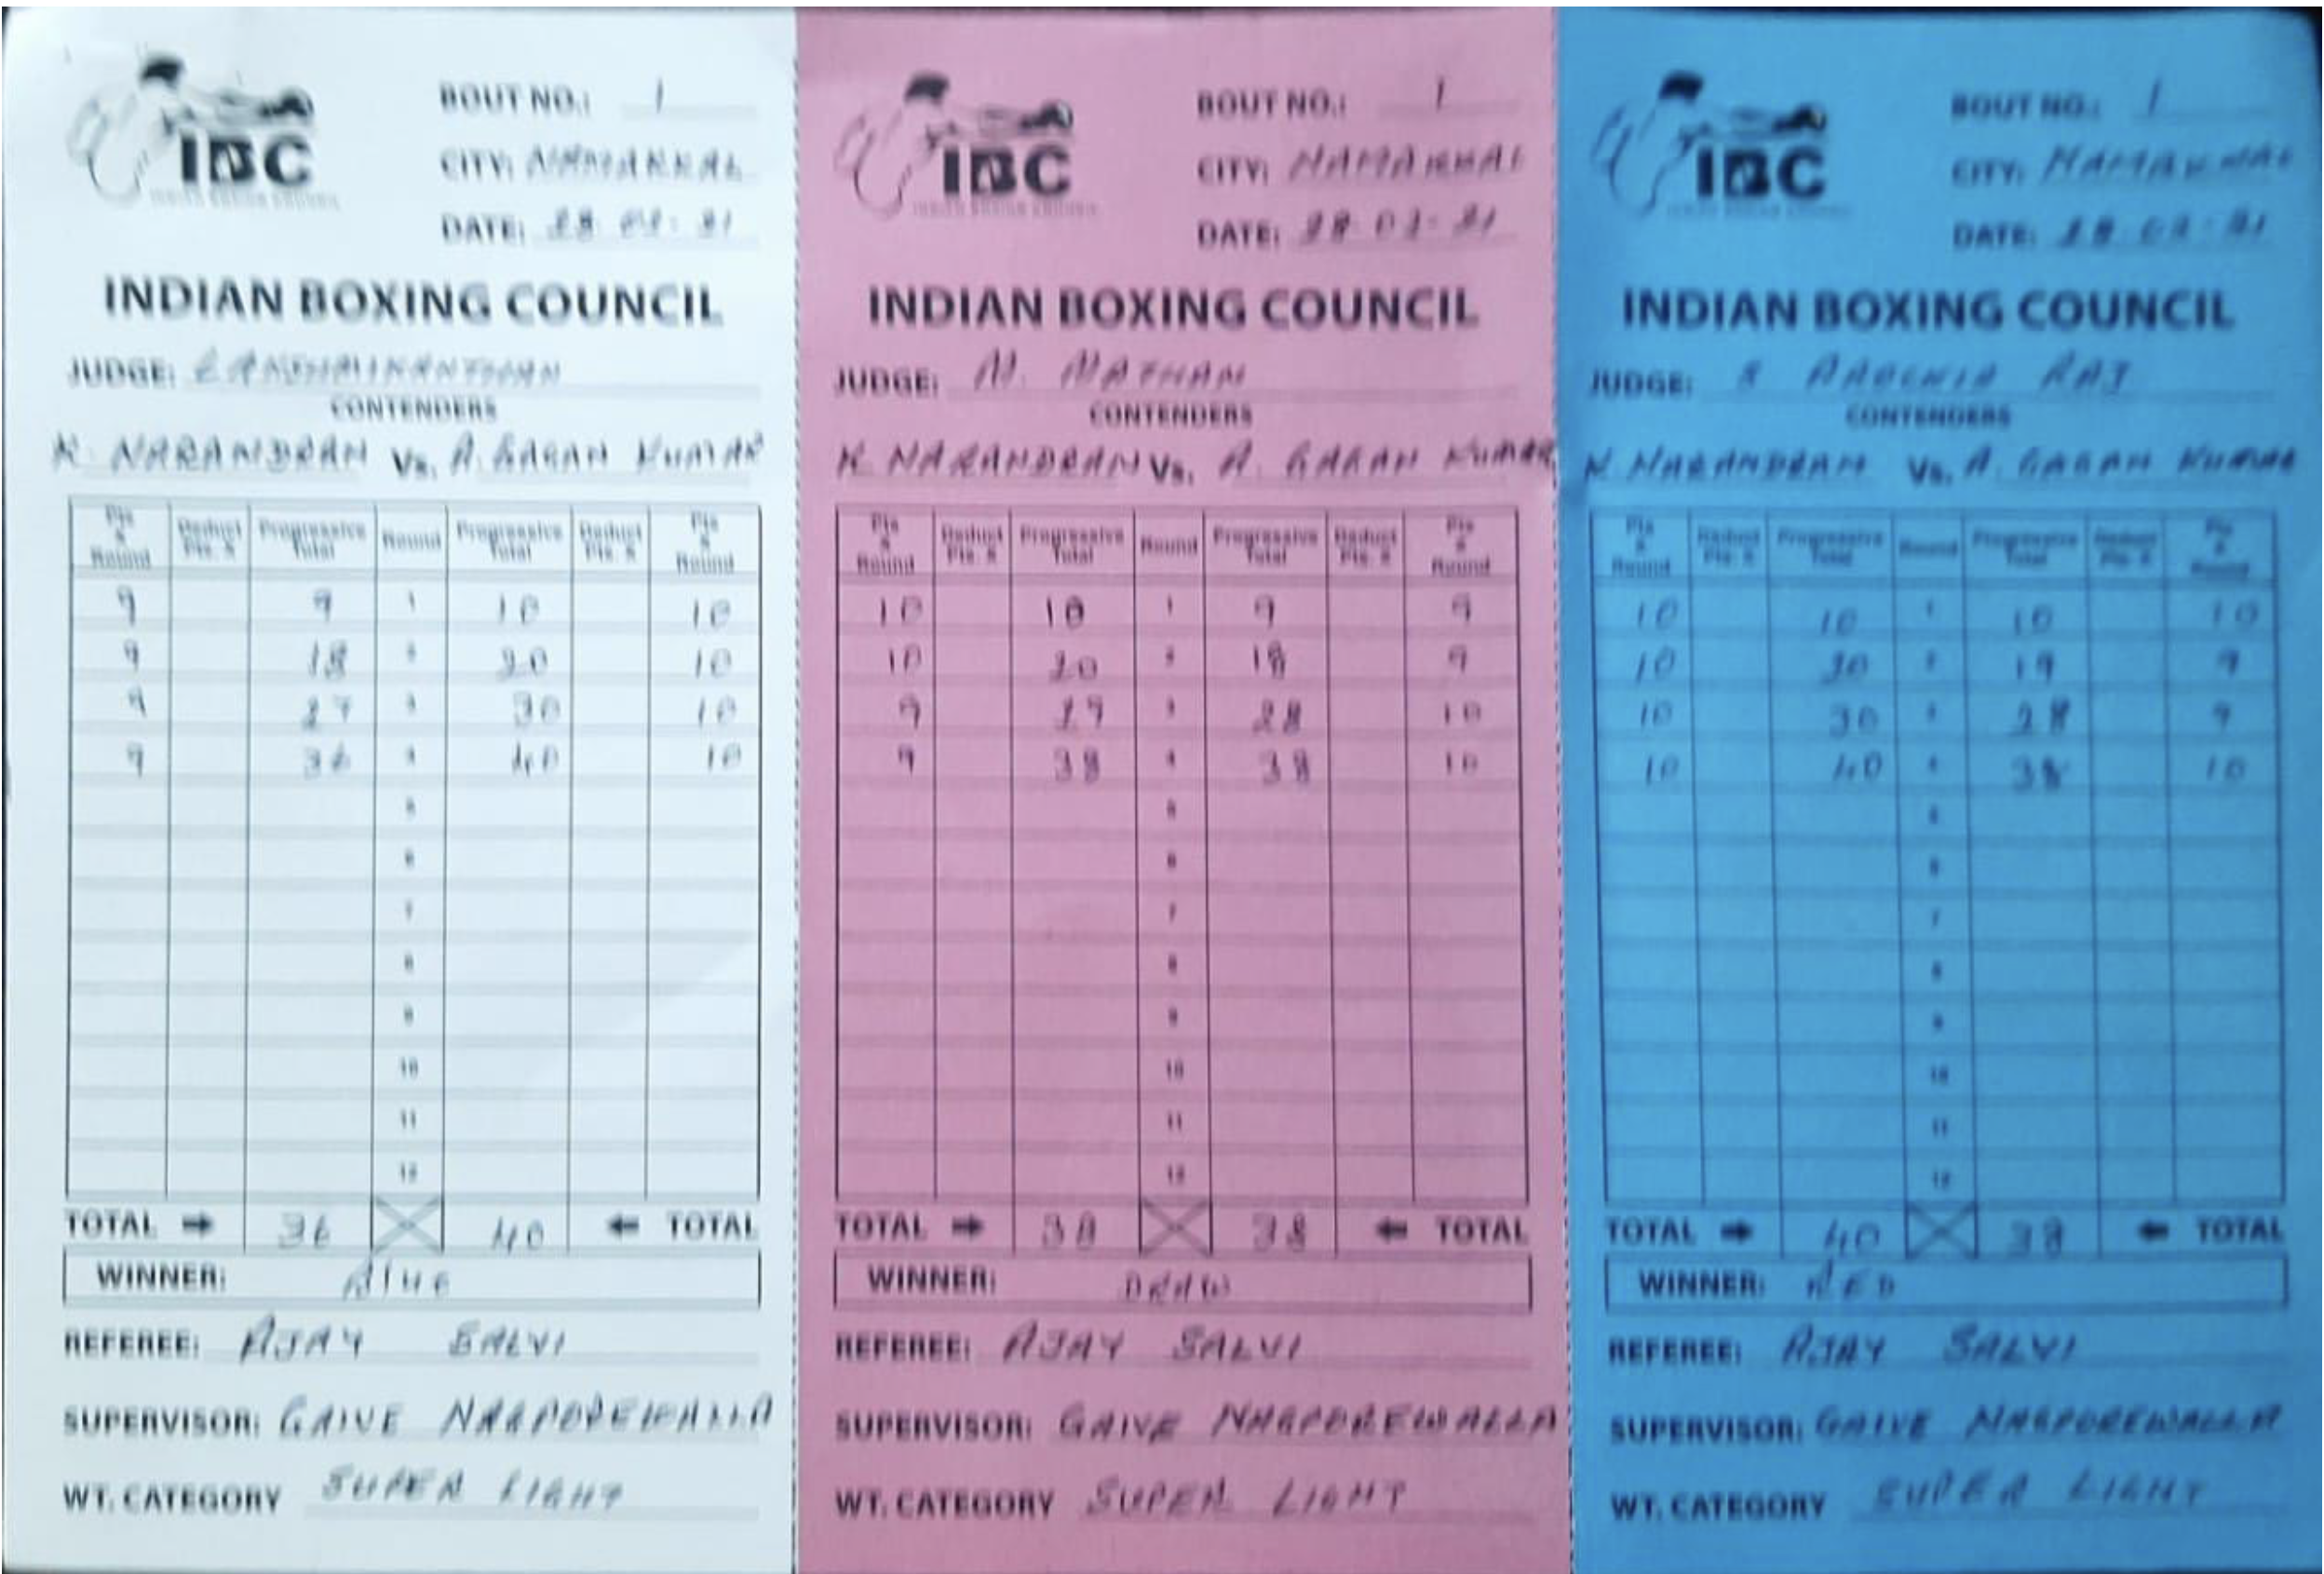 IBC
BOUT NO.: 1
CITY: NAMAKKAL
DATE: 28 02 · 21
INDIAN BOXING COUNCIL
JUDGE:
CONTENDERS
K. NARANDRAN Vs. A. GAGAN KUMAR
Pts & Round Deduct Pts. Progressive Total Round Progressive Total Deduct Pts. Pts & Round
9 9 1 10 10
9 18 2 20 10
9 27 3 30 10
9 36 4 40 10
5
6
7
8
9
10
11
12
TOTAL ➡ 36 40 ⬅ TOTAL
WINNER: Blue
REFEREE: AJAY SALVI
SUPERVISOR: GAIVE NAGPOREWALLA
WT. CATEGORY SUPER LIGHT
IBC
BOUT NO.: 1
CITY: NAMAKKAL
DATE: 28 02 - 21
INDIAN BOXING COUNCIL
JUDGE: M. MATHAN
CONTENDERS
K NARANDRAN Vs. A. GAGAN KUMAR
Pts & Round Deduct Pts. Progressive Total Round Progressive Total Deduct Pts. Pts & Round
10 10 1 9 9
10 20 2 18 9
9 29 3 28 10
9 38 4 38 10
5
6
7
8
9
10
11
12
TOTAL ➡ 38 38 ⬅ TOTAL
WINNER: DRAW
REFEREE: AJAY SALVI
SUPERVISOR: GAIVE NAGPOREWALLA
WT. CATEGORY SUPER LIGHT
IBC
BOUT NO.: 1
CITY: NAMAKKAL
DATE: 28 02 - 21
INDIAN BOXING COUNCIL
JUDGE: S AROCKIA RAJ
CONTENDERS
K NARANDRAN Vs. A. GAGAN KUMAR
Pts & Round Deduct Pts. Progressive Total Round Progressive Total Deduct Pts. Pts & Round
10 10 1 10 10
10 20 2 19 9
10 30 3 28 9
10 40 4 38 10
5
6
7
8
9
10
11
12
TOTAL ➡ 40 38 ⬅ TOTAL
WINNER: RED
REFEREE: AJAY SALVI
SUPERVISOR: GAIVE NAGPOREWALLA
WT. CATEGORY SUPER LIGHT